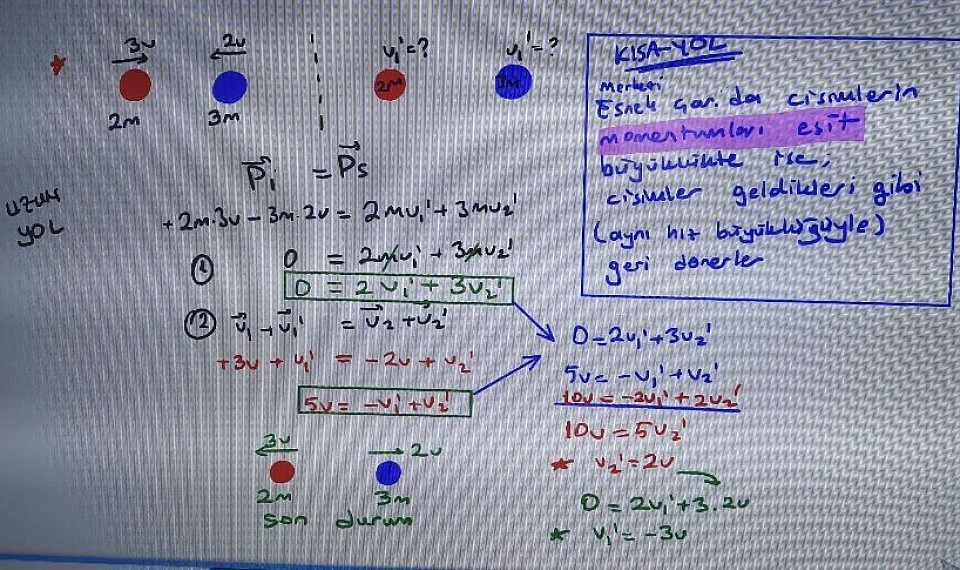 3υ
2υ
υ₁'=?
υ₁'=?
2m
3m
2m
3m
P⃗i = P⃗s
UZUN
YOL
+2m.3υ - 3m.2υ = 2mυ₁' + 3mυ₂'
① 0 = 2mυ₁' + 3mυ₂'
0 = 2υ₁' + 3υ₂'
② υ⃗₁ + υ⃗₁' = υ⃗₂ + υ⃗₂'
+3υ + υ₁' = -2υ + υ₂'
5υ = -υ₁' + υ₂'
3υ
2υ
2m
3m
son durum
KISA-YOL
Merkezi
Esnek Çar. da cisimlerin
momentumları eşit
büyüklükte ise,
cisimler geldikleri gibi
(aynı hız büyüklüğüyle)
geri dönerler
0 = 2υ₁' + 3υ₂'
5υ = -υ₁' + υ₂'
10υ = -2υ₁' + 2υ₂'
10υ = 5υ₂'
υ₂' = 2υ
0 = 2υ₁' + 3.2υ
υ₁' = -3υ